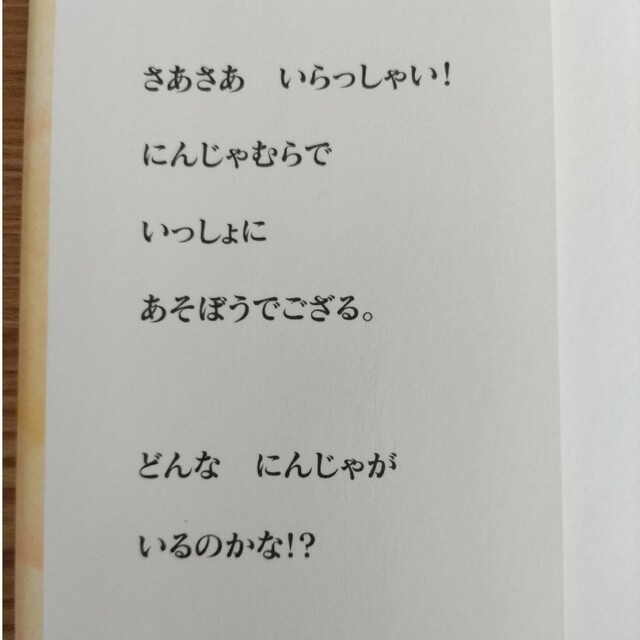 さあさあ　いらっしゃい!
にんじゃむらで
いっしょに
あそぼうでござる。
どんな　にんじゃが
いるのかな!?